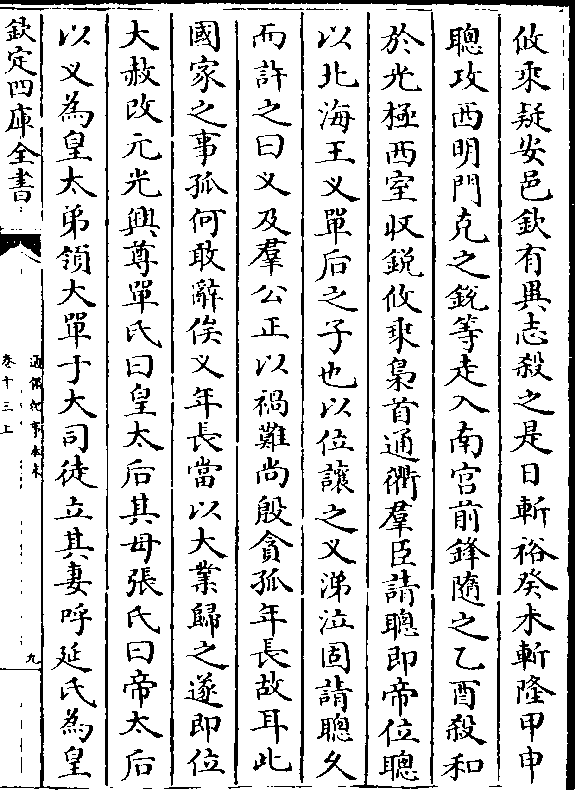 攸乘疑安邑欽有異志殺之是日斬裕癸未斬隆甲申
聰攻西明門克之銳等走入南宫前鋒隨之乙酉殺和
於光極西室収銳攸乘梟首通衢羣臣請聰即帝位聰
以北海王乂單后之子也以位讓之乂涕泣固請聰乆
而許之曰乂及羣公正以禍難尚殷貪孤年長故耳此
國家之事孤何敢辭俟乂年長當以大業歸之遂即位
大赦改元光興尊單氏曰皇太后其母張氏曰帝太后
以乂為皇太弟領大單于大司徒立其妻呼延氏為皇
欽定四庫全書
通鑑紀事本末
卷十三上
九